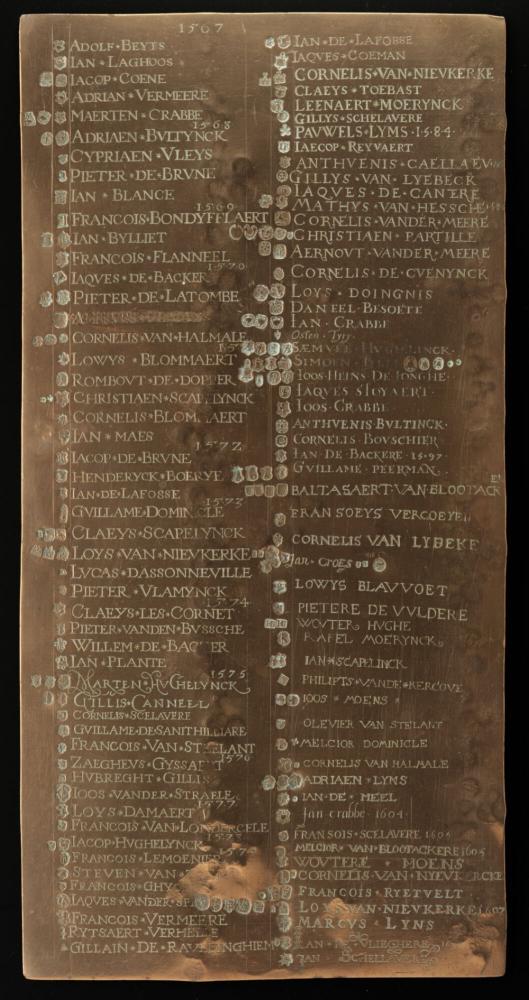 1567
ADOLF BEYTS
IAN LAGHOOS
IACOP COENE
ADRIAN VERMEERE
MAERTEN CRABBE
1568
ADRIAEN BVLTYNCK
CYPRIAEN VLEYS
PIETER DE BRVNE
IAN BLANCE
1569
FRANCOIS BONDYFFLAERT
IAN BYLLIET
FRANCOIS FLANNEEL
1570
IAQVES DE BACKER
PIETER DE LATOMBE
CORNELIS VAN HALMALE
LOWYS BLOMMAERT
ROMBOVT DE DOPPER
CHRISTIAEN SCAPELYNCK
CORNELIS BLOMMAERT
IAN MAES
1572
IACOP DE BRVNE
HENDERYCK BOERYE
IAN DE LAFOSSE
1573
GVILLAME DOMINCLE
CLAEYS SCAPELYNCK
LOYS VAN NIEVKERKE
LVCAS DASSONNEVILLE
PIETER VLAMYNCK
1574
CLAEYS LES CORNET
PIETER VANDEN BVSSCHE
WILLEM DE BACKER
IAN PLANTE
1575
MARTEN HVGHELYNCK
GILLIS CANNEEL
CORNELIS SCELAVERE
GVILLAME DE SANITHILLIARE
FRANCOIS VAN STEELANT
1576
ZAEGHEVS GYSSAERT
HVBREGHT GILLIS
IOOS VANDER STRAELE
1577
LOYS DAMAERT
FRANCOIS VAN LONDERCELE
1578
IACOP HVGHELYNCK
FRANCOIS LEMOENIER
STEVEN VAN
FRANCOIS
IAQVES VANDER
FRANCOIS VERMEERE
RYTSAERT VERHELLE
GILLAIN DE RAVELINGHIEM
IAN DE LAFOBBE
IAQVES COEMAN
CORNELIS VAN NIEVKERKE
CLAEYS TOEBAST
LEENAERT MOERYNCK
GILLYS SCHELAVERE
PAVWELS LYMS 1584
IAECOP REYVAERT
ANTHVENIS
GILLYS VAN LYEBECK
IAQVES DE CANERE
MATHYS VAN HESSCHE
CORNELIS VANDER MEERE
CHRISTIAEN PARTILLE
AERNOVT VANDER MEERE
CORNELIS DE CVENYNCK
LOYS DOINGNIS
DANEEL BESOETE
IAN CRABBE
SÆMVEL HVGHELINCK
SIMOEN
IOOS HEINS DE IONGHE
IAQVES STOVAERT
IOOS CRABBE
ANTHVENIS BVLTINCK
CORNELIS BOVSCHIER
IAN DE BACKERE 1597
GVILLAME PEERMAN
BALTASAERT VAN BLOOTACKEREN
FRANSOEYS VERCOEYEN
CORNELIS VAN LYBEKE
Jan Croes
LOWYS BLAVVOET
PIETERE DE VVLDERE
WOVTER HVGHE
RAFEL MOERYNCK
IAN SCAPELINCK
PHILIPTS VANDE KERCOVE
IOOS MOENS
OLEVIER VAN STELANT
MELCIOR DOMINICLE
CORNELIS VAN HALMALE
ADRIAEN LYNS
IAN DE MEEL
Jan crabbe 1604
FRANSOIS SCELAVERE 1605
MELCIOR VAN BLOOTACKERE 1605
WOVTERE MOENS
CORNELIS VAN NYEVKERCKE
FRANCOIS RYETVELT
LOYS VAN NIEVKERKE 1607
MARCVS LYNS
IAN DE VLIEGHERE
JAN SCHELLAVERE